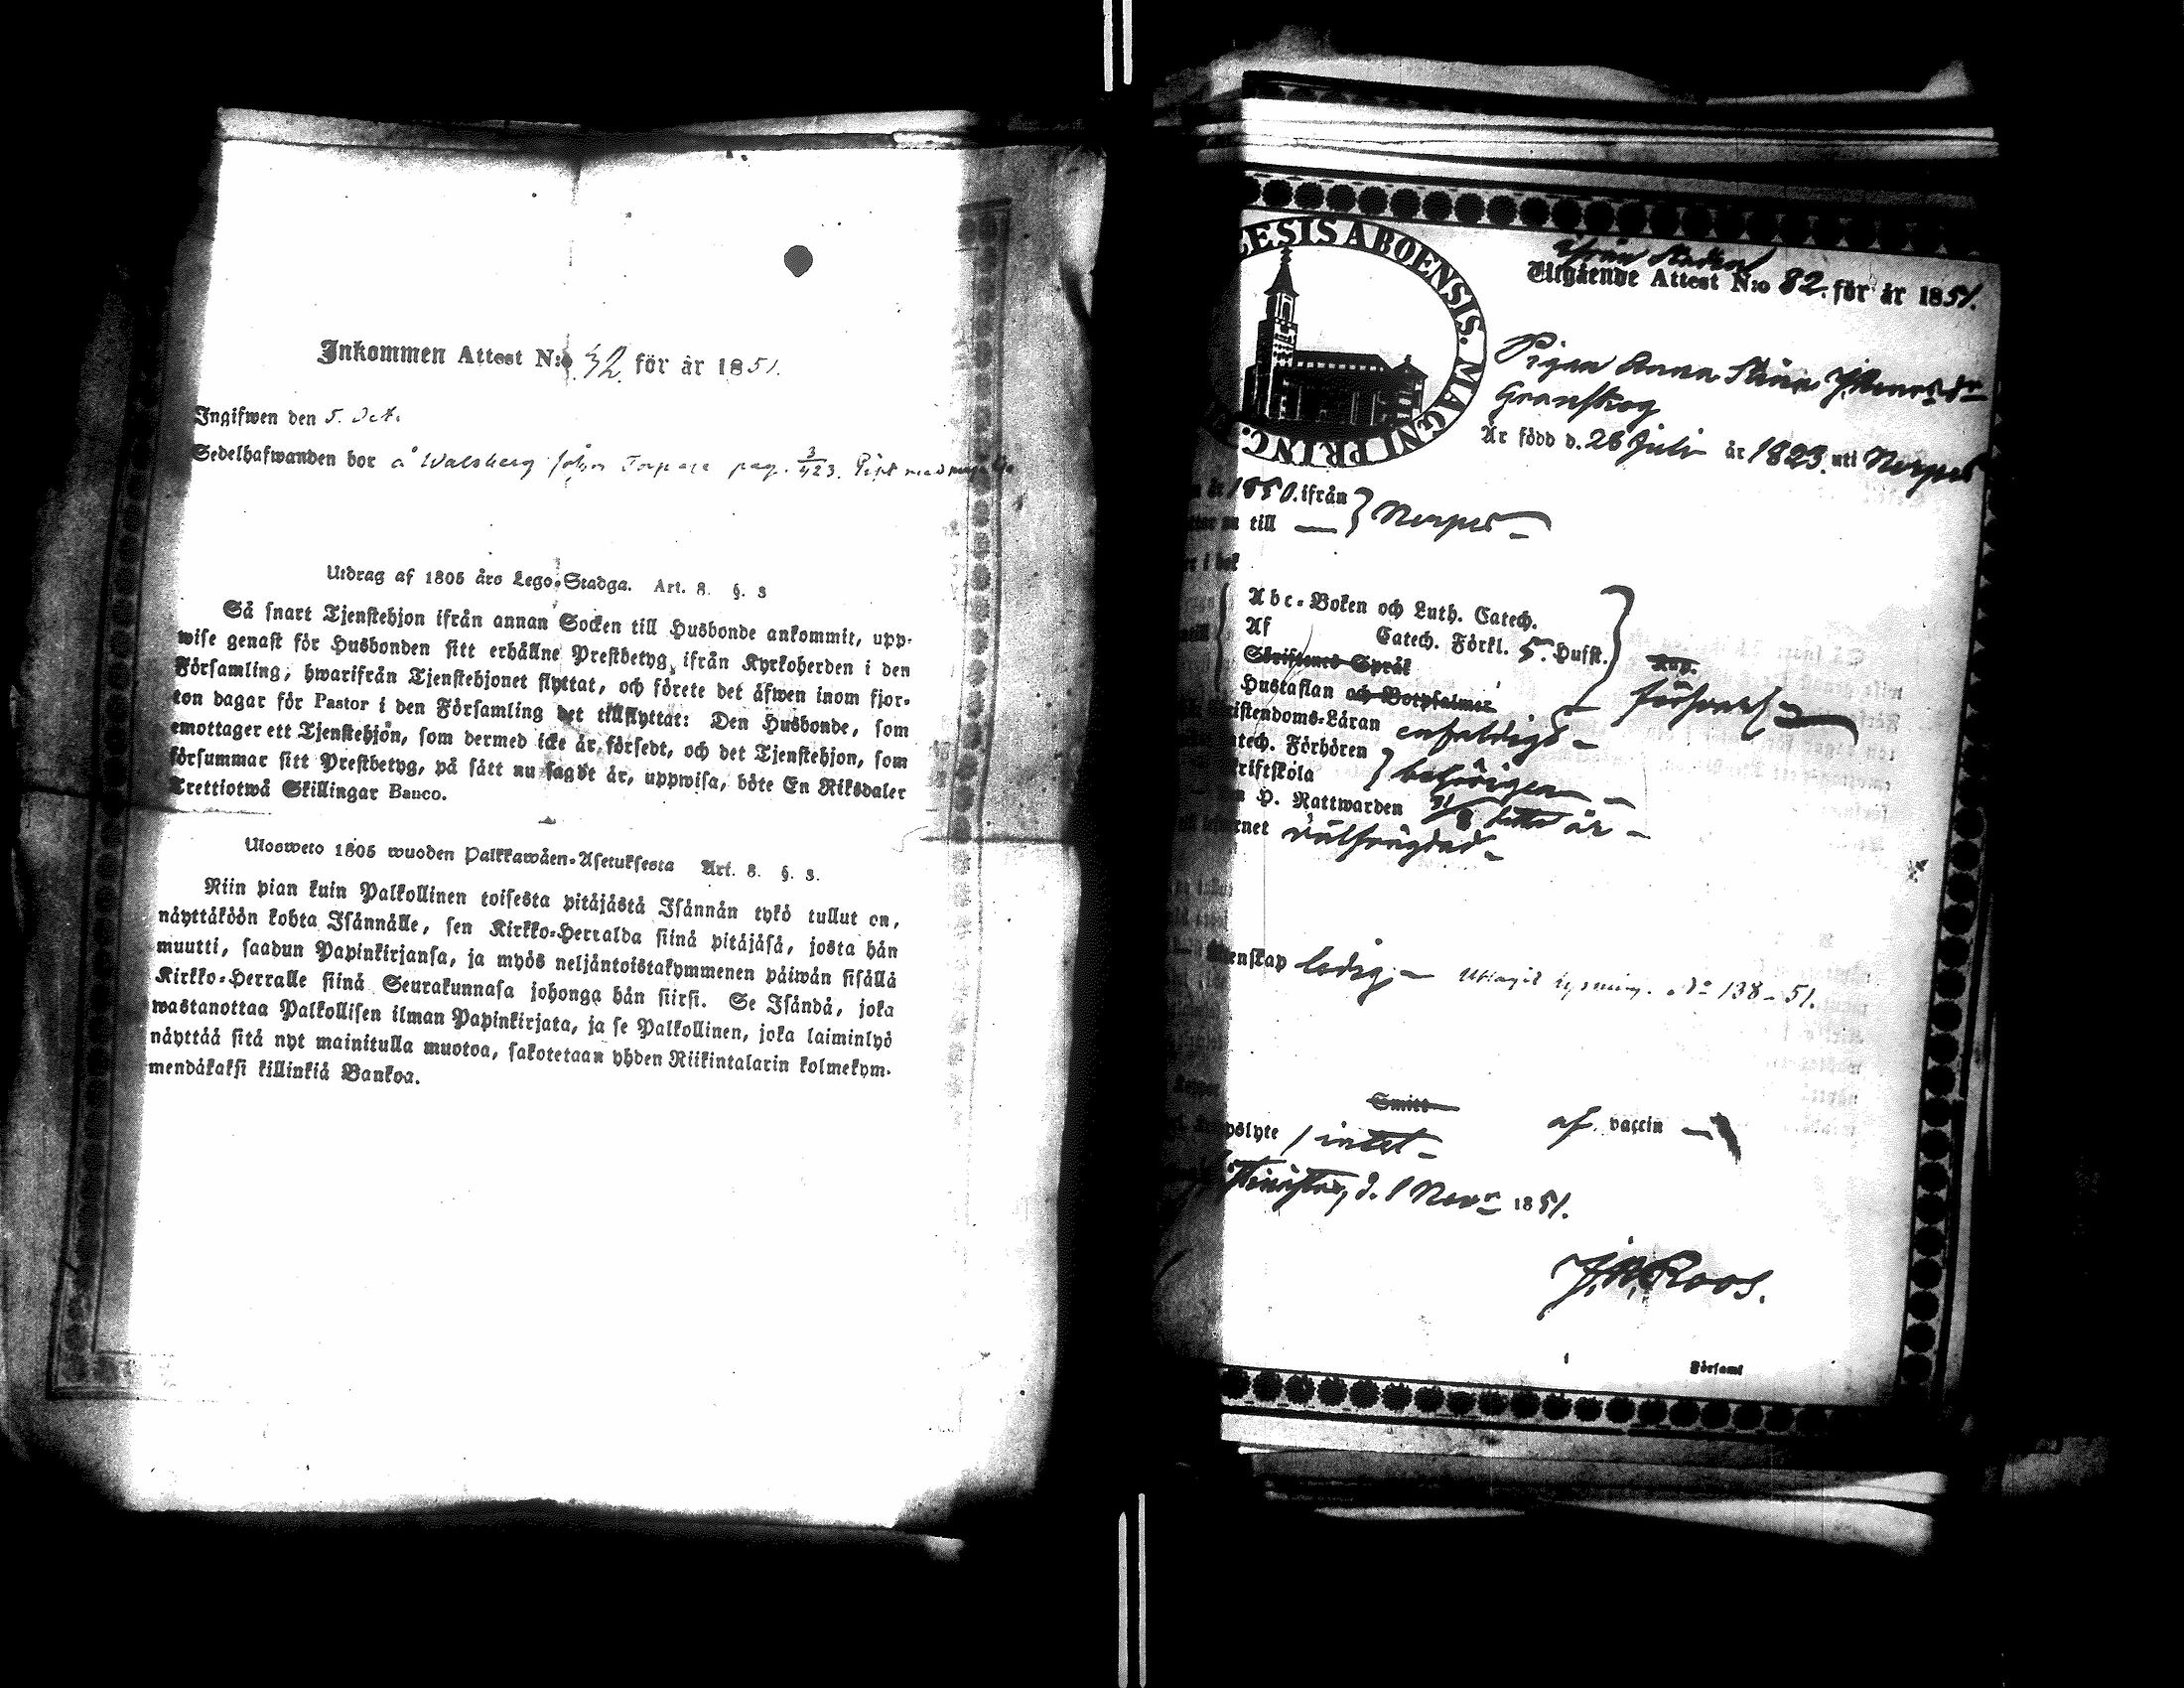 Inkommen Attest N:o 32. för år 1851.
Ingifwen den 5. Oct.
Sedelhafwanden bor å Walsberg Torpare pag. 3/423.
Utdrag af 1805 års Lego-Stadga. Art. 8. §. 3
Så snart Tjenstehjon ifrån annan Socken till Husbonde ankommit, upp-
wise genast för Husbonden sitt erhållne Prestbetyg ifrån Kyrkoherden i den
Församling, hwarifrån Tjenstehjonet flyttat, och förete det äfwen inom fjor-
ton dagar för Pastor i den Församling det tillflyttat: Den Husbonde, som
emottager ett Tjenstehjon, som dermed icke är försedt, och det Tjenstehjon, som
försummar sitt Prestbetyg, på sätt nu sagdt är, uppwisa, böte En Riksdaler
Trettiotwå Skillingar Banco.
Ulosweto 1805 wuoden Palkkawäen-Asetuksesta Art. 8. §. 3.
Niin pian kuin Palkollinen toisesta pitäjästä Isännän tykö tullut on,
näyttäköön kohta Isännälle, sen Kirkko-Herralda siinä pitäjäsä, josta hän
muutti, saadun Papinkirjansa, ja myös neljäntoistakymmenen päiwän sisällä
Kirkko-Herralle siinä Seurakunnasa johonga hän siirsi. Se Isändä, joka
wastanottaa Palkollisen ilman Papinkirjata, ja se Palkollinen, joka laiminlyö
näyttää sitä nyt mainitulla muotoa, sakotetaan yhden Riikintalarin kolmekym-
mendäkaksi killinkiä Bankoa.
LESIS ABOENSIS. MAGNI PRINC.
ifrån Staden
Utgående Attest N:o 82. för år 1851.
Pigan Anna Stina
Granskog
Är född d. 28 Juli år 1823. uti Nerpes
år 1850. ifrån
till — } Nerpes —
i bok
Abc-Boken och Luth. Catech.
Af Catech. Förkl. 5. Hufst.
Skriftenes Språk
Kap.
Hustaflan och Botpsalmer
försvarl.
istendoms-Läran enfaldigt —
atech. Förhören
riftskola } behörigen —
H. Nattwarden sistl. år —
ernet välfrägdad —
enskap ledig, — Uttagit lysning. No 138 - 51.
Smitt
lyte / intet — af vaccin —
d. 1 Novr 1851.
J. W. Roos.
Församl